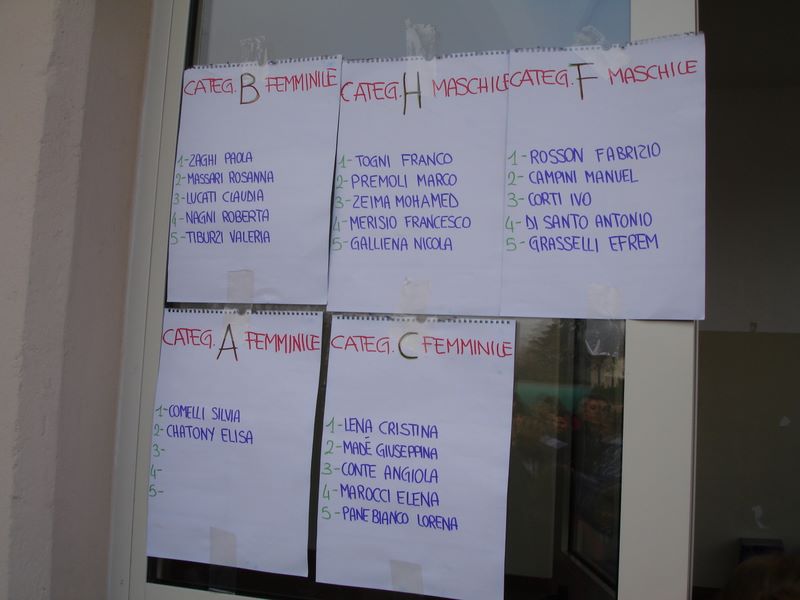 CATEG. B FEMMINILE
1- ZAGHI PAOLA
2- MASSARI ROSANNA
3- LUCATI CLAUDIA
4- NAGNI ROBERTA
5- TIBURZI VALERIA
CATEG. H MASCHILE
1- TOGNI FRANCO
2- PREMOLI MARCO
3- ZEIMA MOHAMED
4- MERISIO FRANCESCO
5- GALLIENA NICOLA
CATEG. F MASCHILE
1- ROSSON FABRIZIO
2- CAMPINI MANUEL
3- CORTI IVO
4- DI SANTO ANTONIO
5- GRASSELLI EFREM
CATEG. A FEMMINILE
1- COMELLI SILVIA
2- CHATONY ELISA
3-
4-
5-
CATEG. C FEMMINILE
1- LENA CRISTINA
2- MADÉ GIUSEPPINA
3- CONTE ANGIOLA
4- MAROCCI ELENA
5- PANEBIANCO LORENA